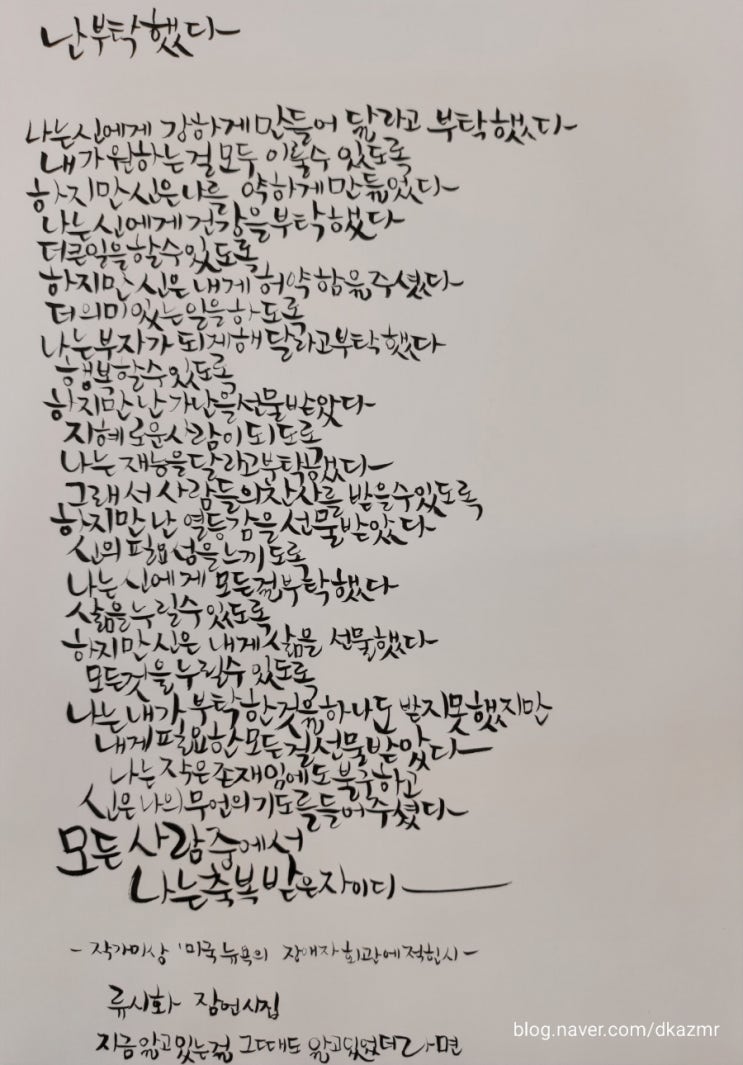 난 부탁했다
나는 신에게 강하게 만들어 달라고 부탁했다
내가 원하는 걸 모두 이룰 수 있도록
하지만 신은 나를 약하게 만들었다
나는 신에게 건강을 부탁했다
더 큰 일을 할 수 있도록
하지만 신은 내게 허약함을 주셨다
더 의미 있는 일을 하도록
나는 부자가 되게 해 달라고 부탁했다
행복할 수 있도록
하지만 난 가난을 선물 받았다
지혜로운 사람이 되도록
나는 재능을 달라고 부탁했다
그래서 사람들의 찬사를 받을 수 있도록
하지만 난 열등감을 선물 받았다
신의 필요성을 느끼도록
나는 신에게 모든 걸 부탁했다
삶을 누릴 수 있도록
하지만 신은 내게 삶을 선물했다
모든 것을 누릴 수 있도록
나는 내가 부탁한 것을 하나도 받지 못했지만
내게 필요한 모든 걸 선물 받았다
나는 작은 존재임에도 불구하고
신은 나의 무언의 기도를 들어주셨다
모든 사람 중에서
나는 축복 받은 자이다
- 작가미상 '미국 뉴욕의 장애자 회관에 적힌 시 -
류시화 잠언시집
지금 알고 있는 걸 그때도 알고 있었더라면
blog.naver.com/dkazmr